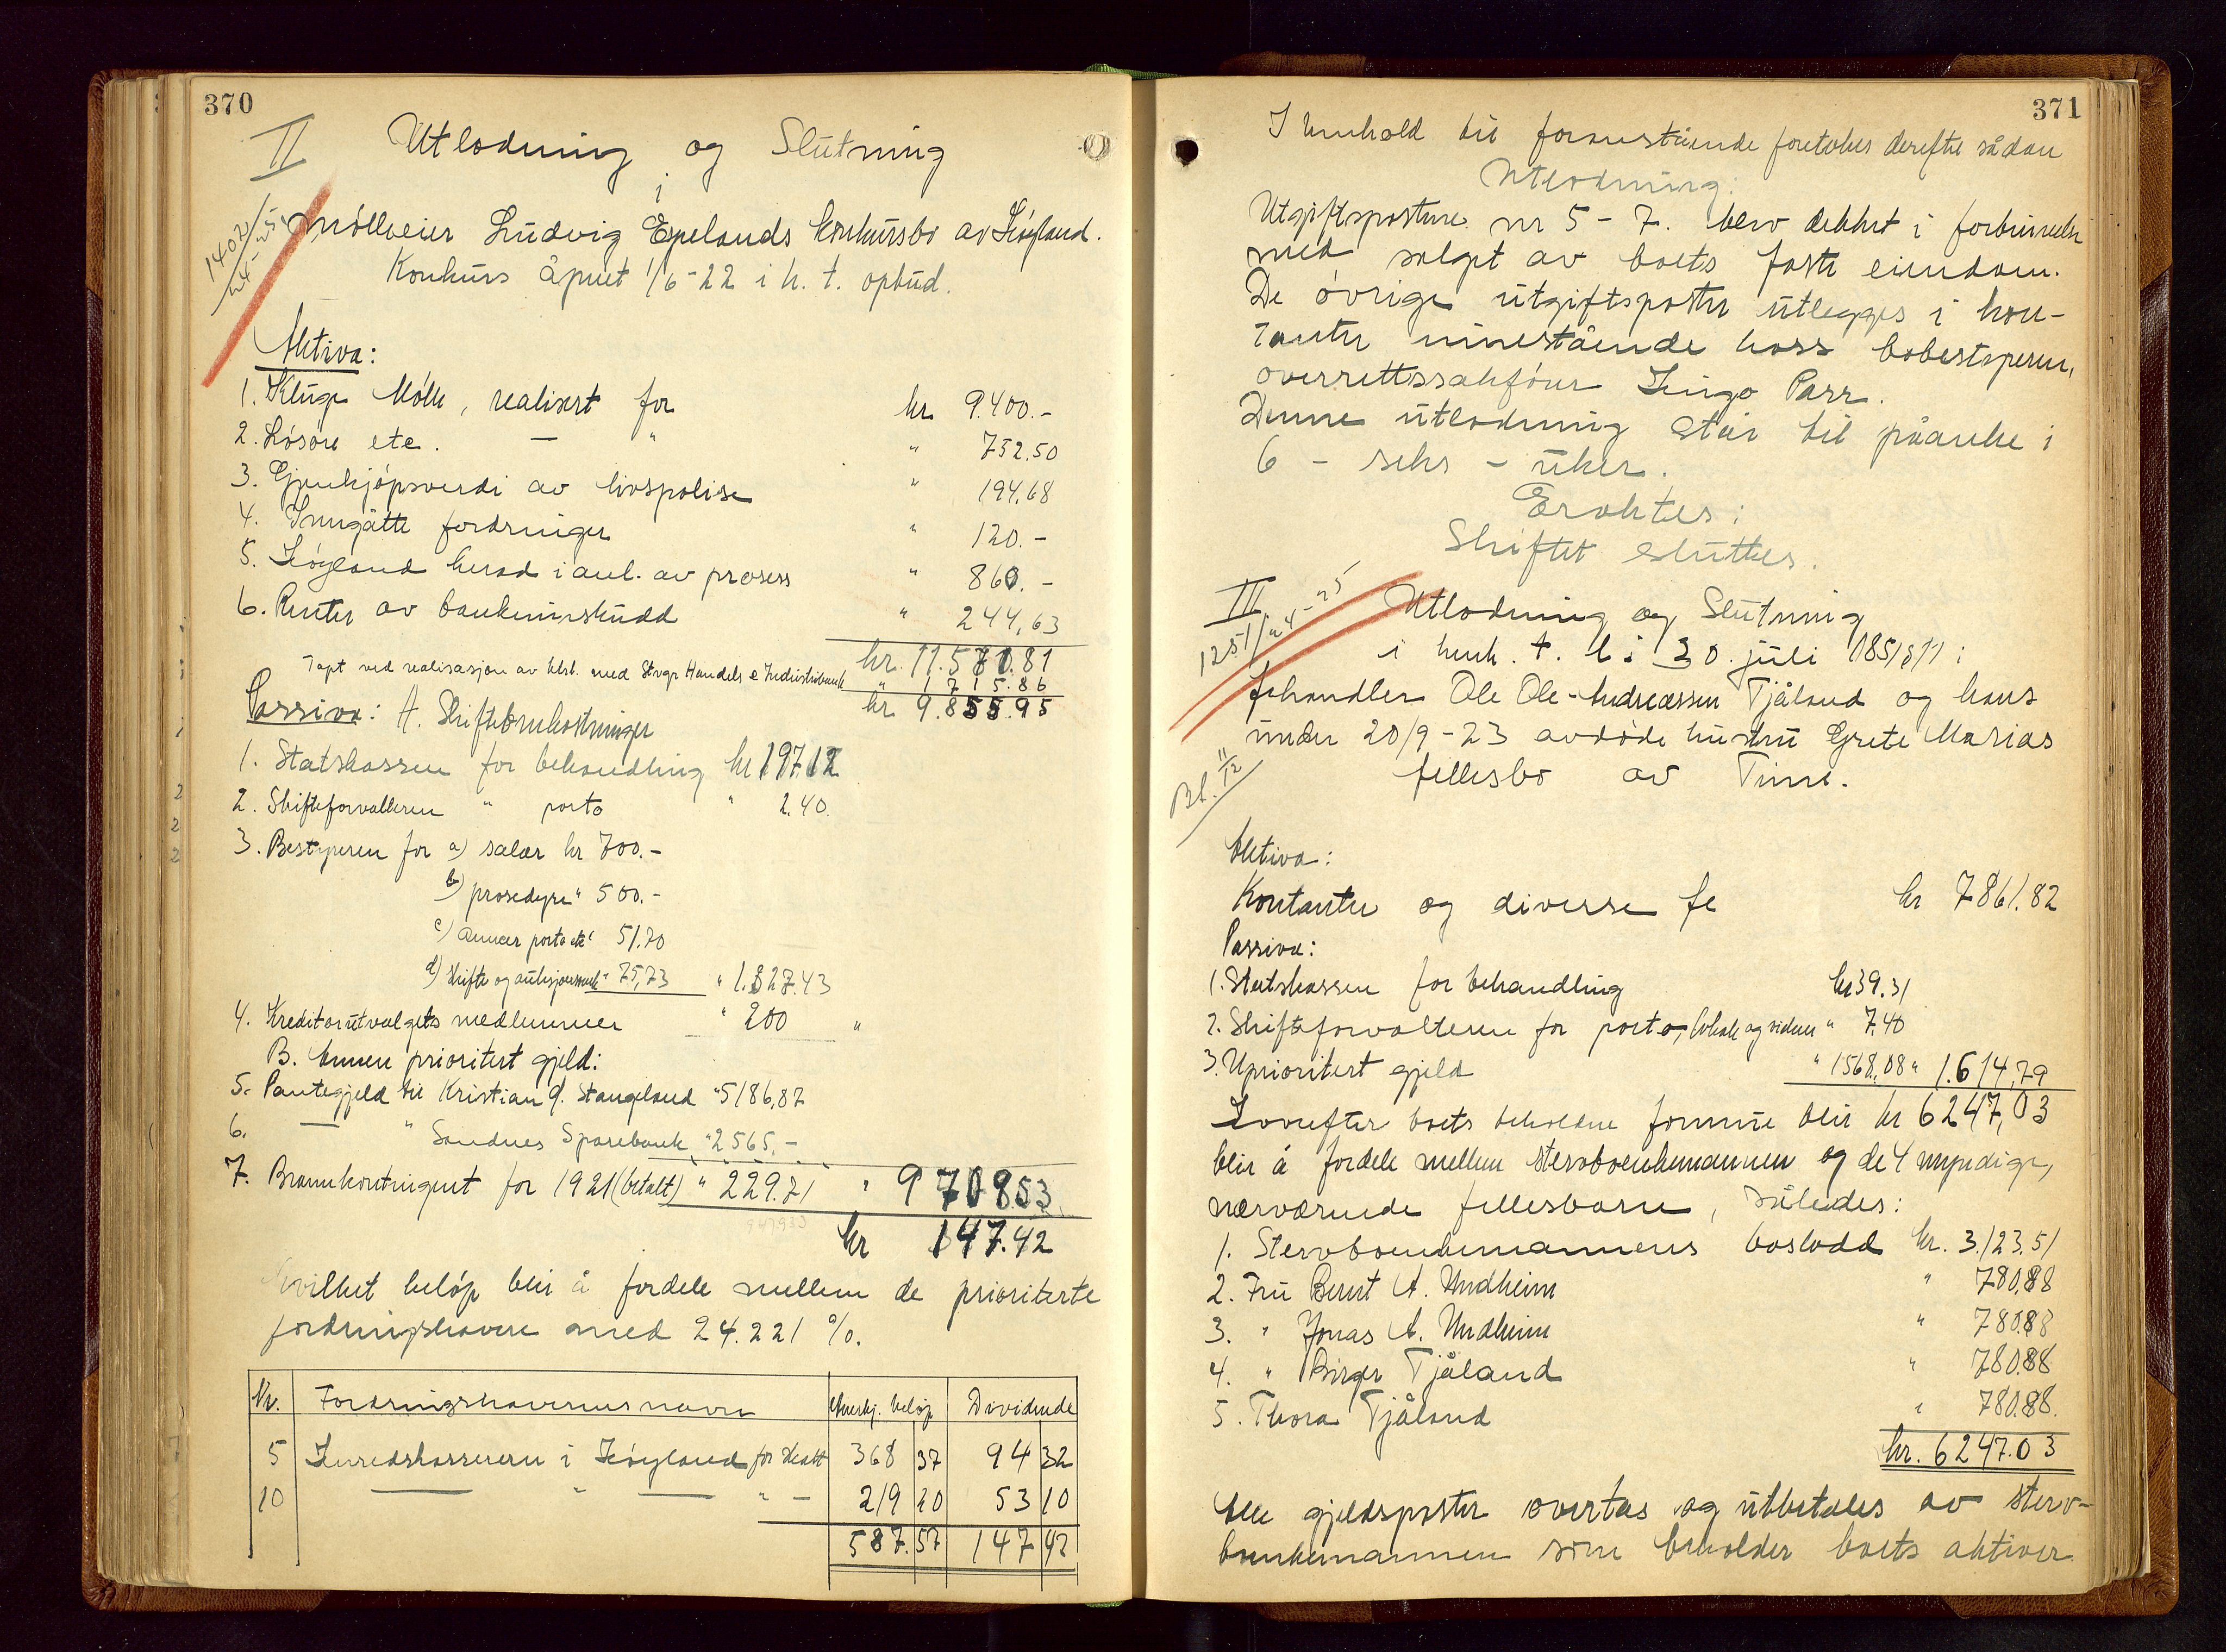 370
II Utlodning og Slutning
i
1402/25
24-4
Mølleeier Ludvig Epelands konkursbo av Høyland.
Konkurs åpnet 1/6-22 i h. t. opbud.
Aktiva:
1. Kluge Mølle, realisert for kr 9.400.-
2. Løsøre etc. — " " 752.50
3. Gjenkjøpsverdi av livspolise " 194.68
4. Inngåtte fordringer " 120.-
5. Høyland herad i anl. av prosess " 860.-
6. Renter av bankinnskudd " 244,63
kr. 11.571.81
Tapt ved realisasjon av " 1715.86
kr 9.855.95
Passiva: A. Skifteomkostninger
1. Statskassen for behandling kr 197 12
2. Skifteforvalteren " porto " 2.40.
3. Bestyreren for a) salær kr 700.-
b) prosedyre " 500.-
c) annen porto etc " 51.70
d) skifte og auksjons " 75,73 " 1.327.43
4. Kreditorutvalgets medlemmer " 200 "
B. Annen prioritert gjeld:
5. Pantegjeld til Kristian J. Stangeland " 5186,87
6. — " Sandnes Sparebank " 2565.-
7. Brannkontingent for 1921 (betalt) " 229.71 " 9708.53
kr 147.42
Hvilket beløp blir å fordele mellem de prioriterte
fordringshavere med 24.221 %.
Nr. Fordringshavernes navn Anerkj. beløp Dividende
5 Heredskassereren i Høyland for skatt 368 37 94 32
10 — " — " — 219 20 53 10
587. 57 147 42
371
I henhold til foranstående foretokes derefter sådan
Utlodning:
Utgiftspostene nr 5 - 7. blev dekket i forbindelse
med salget av boets faste eiendom.
De øvrige utgiftsposter utlegges i kon-
tanter innestående hoss bobestyreren,
overrettssakfører Parr.
Denne utlodning står til påanke i
6 - seks - uker.
Eraktes:
Skiftet sluttes.
III
1251/24-4-25
Utlodning og Slutning
i henh. t. l. 30. juli 1851 § 11 i
fehandler Ole Ole-Andreassen Tjåland og hans
under 20/9-23 avdøde hustru Grete Marias
fellesbo av Time.
Bl. 11/12
Aktiva:
Kontanter og diverse fe kr 7861.82
Passiva:
1. Statskassen for behandling kr 39.31
2. Skifteforvalteren for porto, lokale og vidner " 7.40
3. Uprioritert gjeld " 1568,08 " 1.614,79
Hvorefter boets beholdne formue blir kr 6247,03
blir å fordele mellem stervboenkemannen og de 4 myndige,
nærværende fellesbarn, således:
1. Stervboenkemannens boslodd kr. 3.123.51
2. Fru Bernt A. Undheim " 780,88
3. " Jonas A. Undheim " 780.88
4. " Birger Tjåland " 780.88
5. Thora Tjåland " 780.88.
kr. 6247.03
Alle gjeldsposter overtas og utbetales av sterv-
boenkemannen som beholder boets aktiver